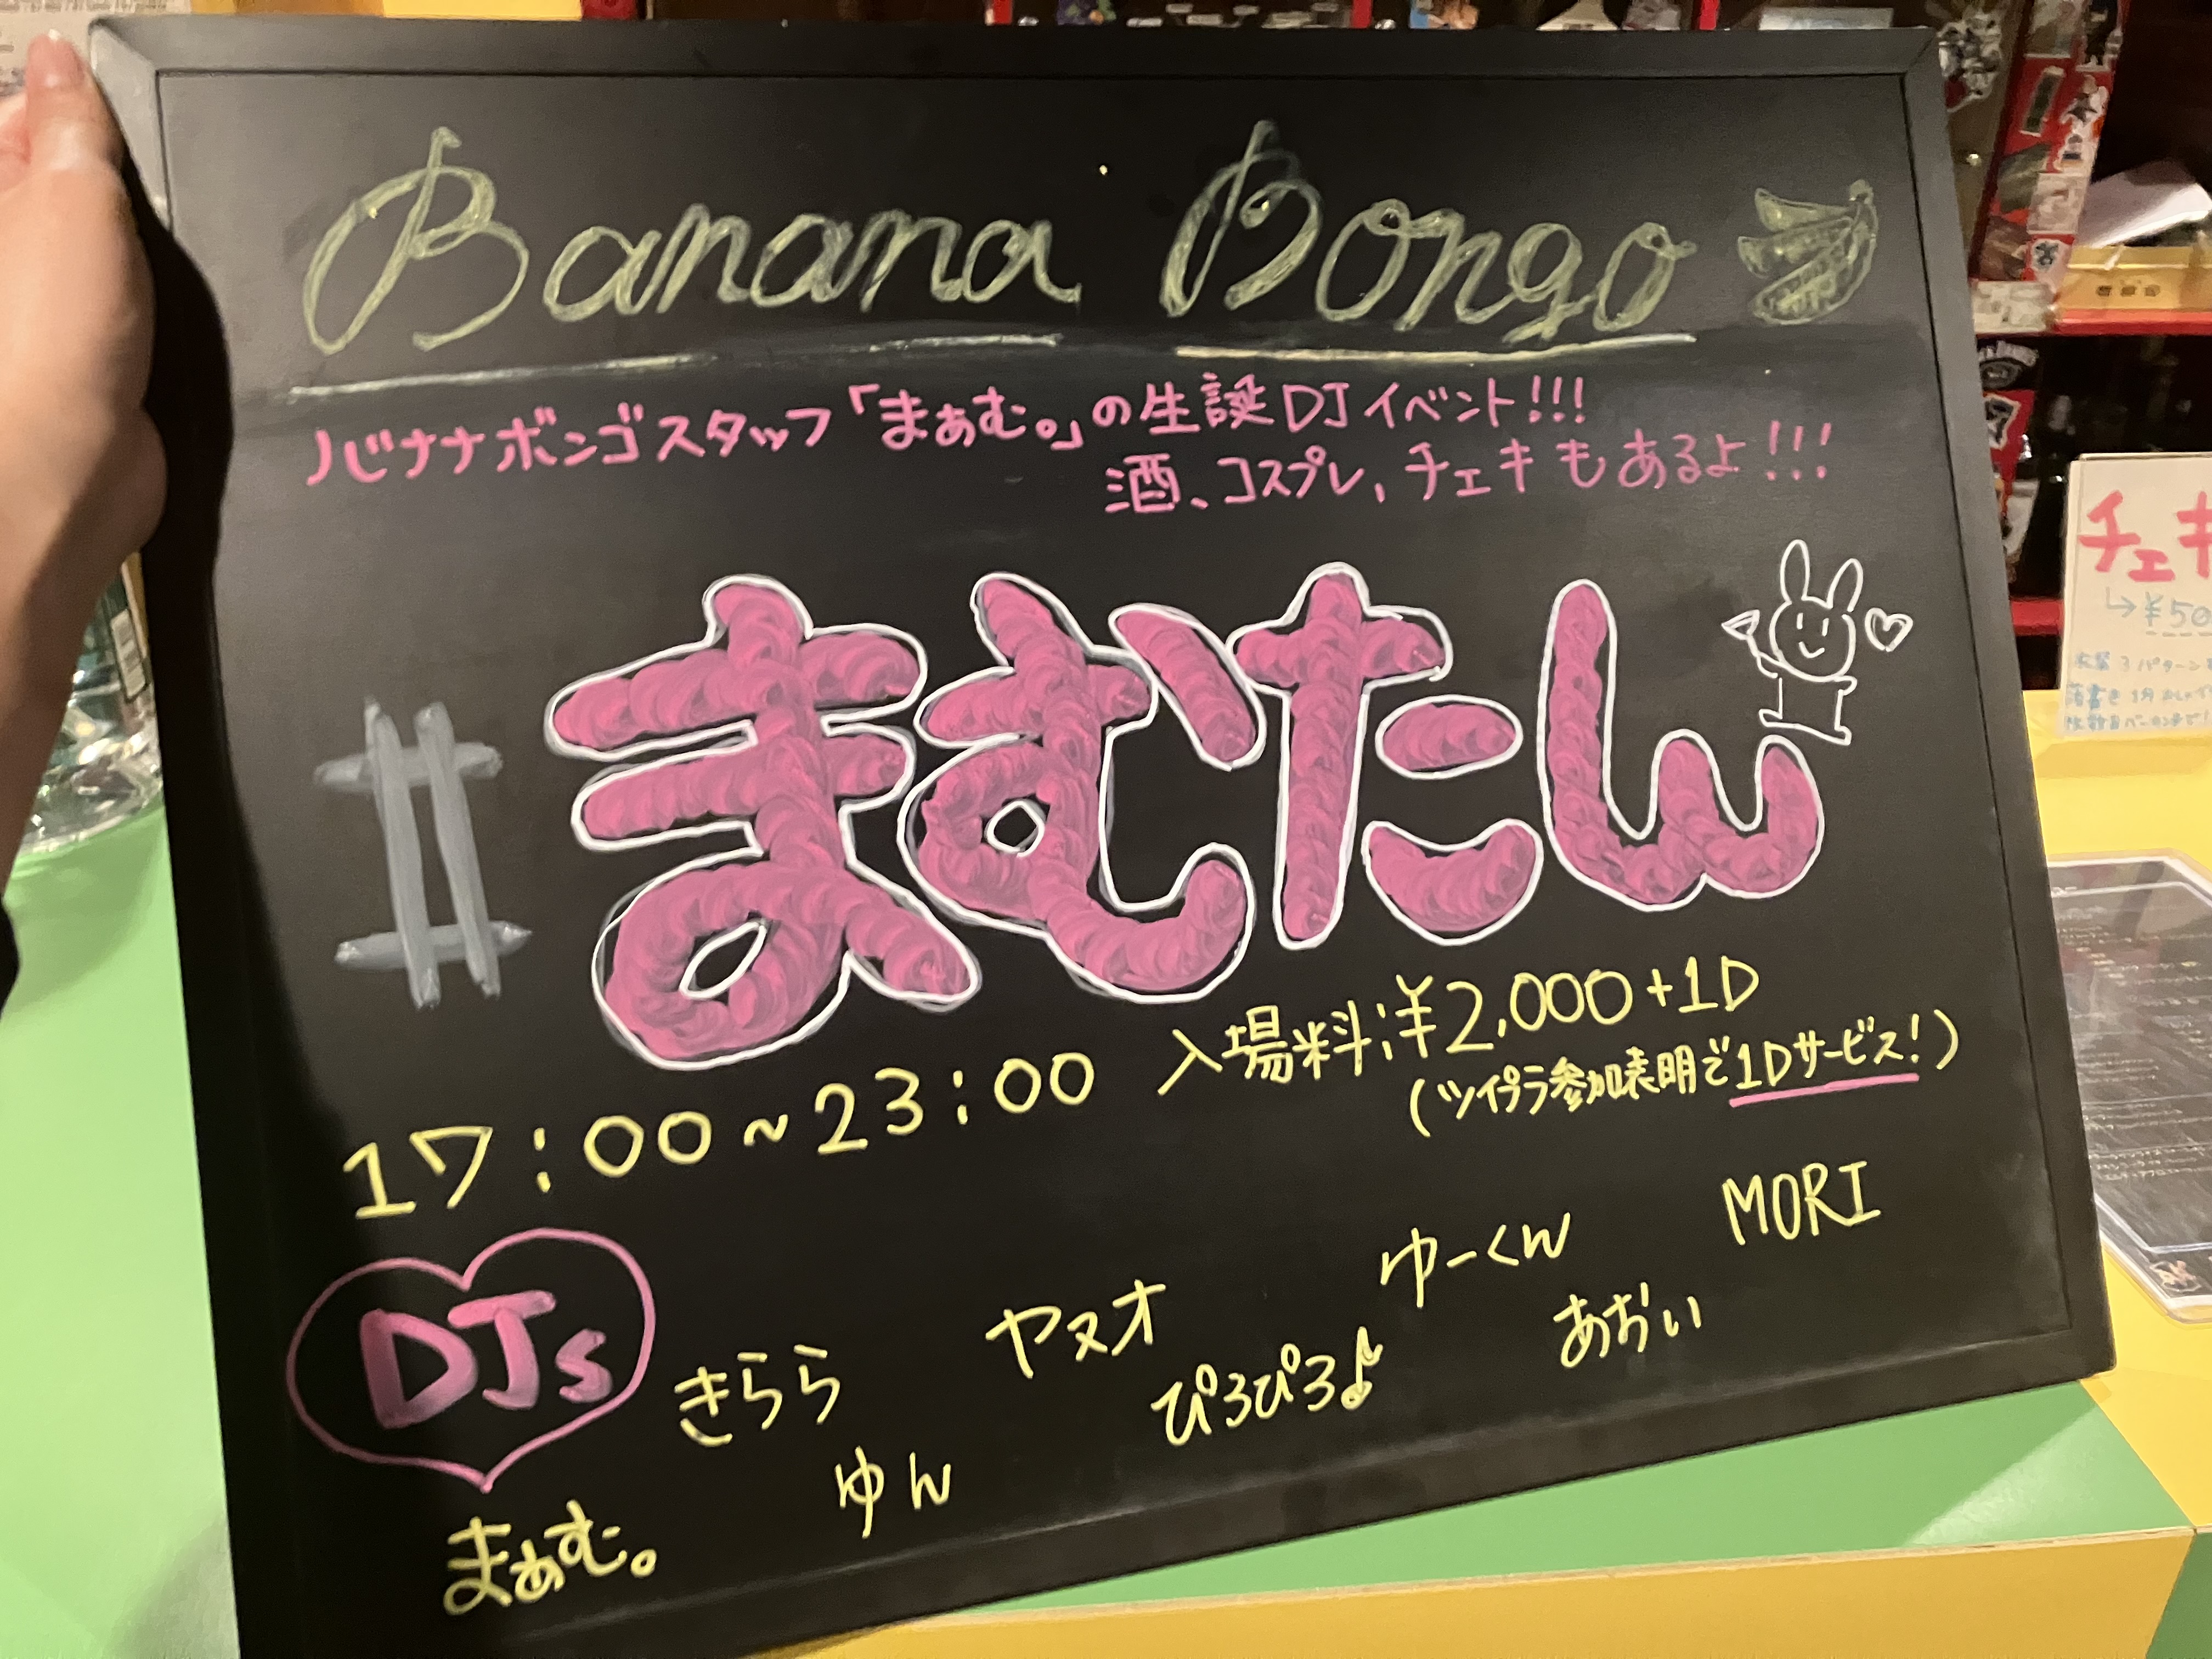 Banana Bongo
バナナボンゴスタッフ「まぁむ。」の生誕DJイベント!!!
酒、コスプレ、チェキもあるよ!!!
#まむたん
17:00~23:00
入場料:¥2,000+1D
(ツイプラ参加表明で1Dサービス!)
DJs
まぁむ。
きらら
ゆん
ヤヌオ
ぴろぴろ♪
ゆーくん
あおい
MORI
チェキ